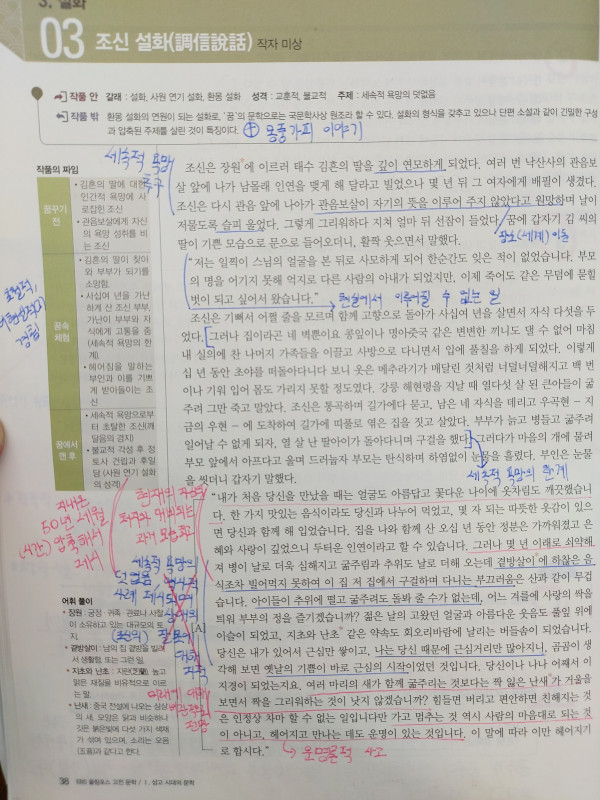 3. 설화
03 조신 설화(調信說話) 작자 미상
작품 안 갈래 : 설화, 사원 연기 설화, 환몽 설화 성격 : 교훈적, 불교적 주제 : 세속적 욕망의 덧없음
작품 밖 환몽 설화의 연원이 되는 설화로, '꿈'의 문학으로는 국문학사상 원조라 할 수 있다. 설화의 형식을 갖추고 있으나 단편 소설과 같이 긴밀한 구성
과 압축된 주제를 살린 것이 특징이다. + 몽풍가피 이야기
작품의 짜임
꿈꾸기
전
• 김흔의 딸에 대한
인간적 욕망에 사
로잡힌 조신
• 관음보살에게 자신
의 욕망 성취를 비
는 조신
꿈속
체험
• 김흔의 딸이 찾아
와 부부가 되기를
소망함.
• 사십여 년을 가난
하게 산 조신 부부,
가난이 부부와 자
식에게 고통을 줌
(세속적 욕망의 한
계).
• 헤어짐을 말하는
부인과 이를 기쁘
게 받아들이는 조
신
꿈에서
깬 후
• 세속적 욕망으로부
터 초탈한 조신(깨
달음의 경지)
• 불교적 각성 후 정
토사 건립과 후일
담 (사원 연기 설화
의 성격)
세속적 욕망
추구
조신은 장원*에 이르러 태수 김흔의 딸을 깊이 연모하게 되었다. 여러 번 낙산사의 관음보
살 앞에 나가 남몰래 인연을 맺게 해 달라고 빌었으나 몇 년 뒤 그 여자에게 배필이 생겼다.
조신은 다시 관음 앞에 나아가 관음보살이 자기의 뜻을 이루어 주지 않았다고 원망하며 날이
저물도록 슬피 울었다. 그렇게 그리워하다 지쳐 얼마 뒤 선잠이 들었다. 꿈에 갑자기 김 씨의
딸이 기쁜 모습으로 문으로 들어오더니, 활짝 웃으면서 말했다.
장소(세계) 이동
"저는 일찍이 스님의 얼굴을 본 뒤로 사모하게 되어 한순간도 잊은 적이 없었습니다. 부모
의 명을 어기지 못해 억지로 다른 사람의 아내가 되었지만, 이제 죽어도 같은 무덤에 묻힐
벗이 되고 싶어서 왔습니다."
현실에서 이루어질 수 없는 일
조신은 기뻐서 어쩔 줄을 모르며 함께 고향으로 돌아가 사십여 년을 살면서 자식 다섯을 두
었다. 그러나 집이라곤 네 벽뿐이요 콩잎이나 명아줏국 같은 변변한 끼니도 댈 수 없어 마침
내 실의에 찬 나머지 가족들을 이끌고 사방으로 다니면서 입에 풀칠을 하게 되었다. 이렇게
십 년 동안 초야를 떠돌아다니다 보니 옷은 메추라기가 매달린 것처럼 너덜너덜해지고 백 번
이나 기워 입어 몸도 가리지 못할 정도였다. 강릉 해현령을 지날 때 열다섯 살 된 큰아들이 굶
주려 그만 죽고 말았다. 조신은 통곡하며 길가에다 묻고, 남은 네 자식을 데리고 우곡현 - 지
금의 우현 - 에 도착하여 길가에 띠풀로 엮은 집을 짓고 살았다. 부부가 늙고 병들고 굶주려
일어날 수 없게 되자, 열 살 난 딸아이가 돌아다니며 구걸을 했다. 그러다가 마을의 개에 물려
부모 앞에서 아프다고 울며 드러눕자 부모는 탄식하며 하염없이 눈물을 흘렸다. 부인은 눈물
을 씻더니 갑자기 말했다.
세속적 욕망의 한계
"내가 처음 당신을 만났을 때는 얼굴도 아름답고 꽃다운 나이에 옷차림도 깨끗했습니
다. 한 가지 맛있는 음식이라도 당신과 나누어 먹었고, 몇 자 되는 따뜻한 옷감이 있으
면 당신과 함께 해 입었습니다. 집을 나와 함께 산 오십 년 동안 정분은 가까워졌고 은
혜와 사랑이 깊었으니 두터운 인연이라고 할 수 있습니다. 그러나 몇 년 이래로 쇠약해
져 병이 날로 더욱 심해지고 굶주림과 추위도 날로 더해 오는데 곁방살이*에 하찮은 음
식조차 빌어먹지 못하여 이 집 저 집에서 구걸하며 다니는 부끄러움은 산과 같이 무겁
습니다. 아이들이 추위에 떨고 굶주려도 돌봐 줄 수가 없는데, 어느 겨를에 사랑의 싹을
틔워 부부의 정을 즐기겠습니까? 젊은 날의 고왔던 얼굴과 아름다운 웃음도 풀잎 위에
이슬이 되었고, 지초와 난초* 같은 약속도 회오리바람에 날리는 버들솜이 되었습니다.
[A]
당신은 내가 있어서 근심만 쌓이고, 나는 당신 때문에 근심거리만 많아지니, 곰곰이 생
각해 보면 옛날의 기쁨이 바로 근심의 시작이었던 것입니다. 당신이나 나나 어째서 이
지경이 되었는지요. 여러 마리의 새가 함께 굶주리는 것보다는 짝 잃은 난새*가 거울을
보면서 짝을 그리워하는 것이 낫지 않겠습니까? 힘들면 버리고 편안하면 친해지는 것
은 인정상 차마 할 수 없는 일입니다만 가고 멈추는 것 역시 사람의 마음대로 되는 것
이 아니고, 헤어지고 만나는 데도 운명이 있는 것입니다. 이 말에 따라 이만 헤어지기
로 합시다."
운명론적 사고
50년 세월
(시간) 압축해서
제시
현재의 처지
과거 모습
세속적 욕망의
덧없음
미래에 대해
어휘 풀이
• 장원 : 궁정·귀족·관료나 사찰
이 소유하고 있는 대규모의 토
지.
• 곁방살이 : 남의 집 곁방을 빌려
서 생활함. 또는 그런 일.
• 지초와 난초 : 지란(芝蘭). 높고
맑은 재질을 비유적으로 이르
는 말.
• 난새 : 중국 전설에 나오는 상상
의 새. 모양은 닭과 비슷하나
깃은 붉은빛에 다섯 가지 색채
가 섞여 있으며, 소리는 오음
(五音)과 같다고 한다.
38 EBS 올림포스 고전 문학 / I. 상고 시대의 문학